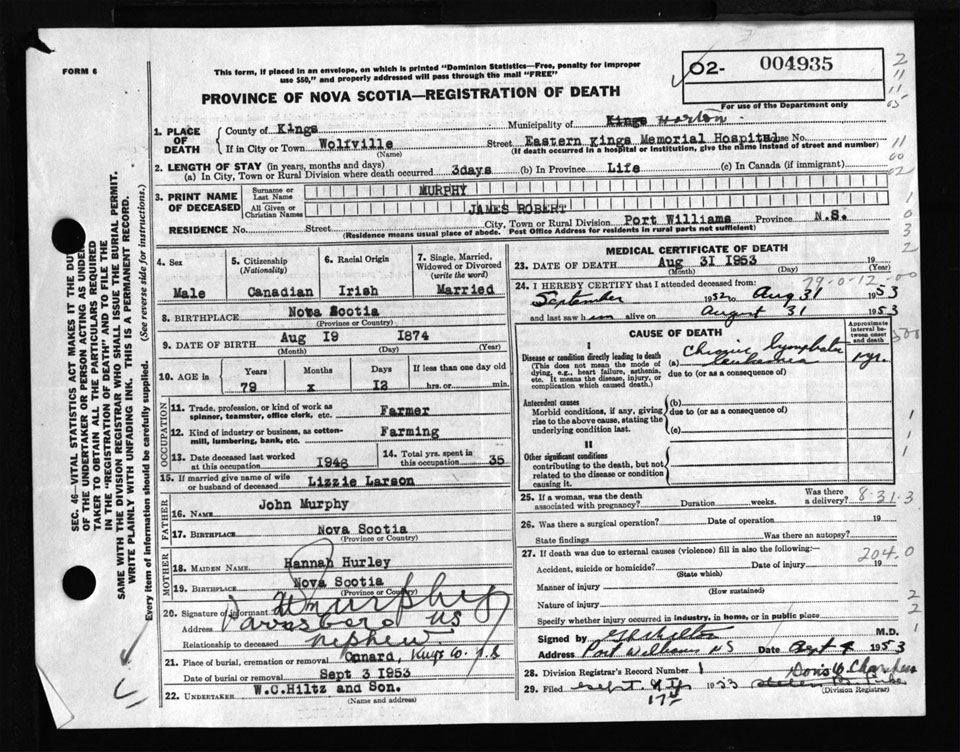 FORM 6
This form, if placed in an envelope, on which is printed "Dominion Statistics—Free, penalty for improper
use $50," and properly addressed will pass through the mail "FREE"
02- 004935
For use of the Department only
PROVINCE OF NOVA SCOTIA—REGISTRATION OF DEATH
1. PLACE OF DEATH
County of Kings Municipality of Kings Horton
If in City or Town Wolfville Street Eastern Kings Memorial Hospital House No.
(Name) (If death occurred in a hospital or institution, give the name instead of street and number)
2. LENGTH OF STAY (in years, months and days)
(a) In City, Town or Rural Division where death occurred 3days (b) In Province Life (c) In Canada (if immigrant)
3. PRINT NAME OF DECEASED
Surname or Last Name MURPHY
All Given or Christian Names JAMES ROBERT
RESIDENCE No. Street City, Town or Rural Division Port Williams Province N.S.
(Residence means usual place of abode. Post Office Address for residents in rural parts not sufficient)
4. Sex
Male
5. Citizenship (Nationality)
Canadian
6. Racial Origin
Irish
7. Single, Married, Widowed or Divorced (write the word)
Married
8. BIRTHPLACE Nova Scotia
(Province or Country)
9. DATE OF BIRTH Aug 19 1874
(Month) (Day) (Year)
10. AGE in
Years Months Days If less than one day old
79 x 12 hrs. or min.
OCCUPATION
11. Trade, profession, or kind of work as spinner, teamster, office clerk, etc. Farmer
12. Kind of industry or business, as cotton-mill, lumbering, bank, etc. Farming
13. Date deceased last worked at this occupation 1946
14. Total yrs. spent in this occupation 35
15. If married give name of wife or husband of deceased Lizzie Larson
FATHER
16. NAME John Murphy
17. BIRTHPLACE Nova Scotia
(Province or Country)
MOTHER
18. MAIDEN NAME Hannah Hurley
19. BIRTHPLACE Nova Scotia
(Province or Country)
20. Signature of informant Murphy
Address Parrsboro NS
Relationship to deceased nephew
21. Place of burial, cremation or removal Canard, Kings Co. N.S
Date of burial or removal Sept 3 1953
22. UNDERTAKER W.C.Hiltz and Son.
(Name and address)
MEDICAL CERTIFICATE OF DEATH
23. DATE OF DEATH Aug 31 1953 19
(Month) (Day) (Year)
79-0-12-00
24. I HEREBY CERTIFY that I attended deceased from:
September 1952 to Aug 31 1953
and last saw h im alive on August 31 1953
CAUSE OF DEATH
Approximate interval between onset and death
I
Disease or condition directly leading to death
(This does not mean the mode of dying, e.g., heart failure, asthenia, etc. It means the disease, injury, or complication which caused death.)
(a) Chronic Lymphatic Leukaemia 1 yr.
due to (or as a consequence of)
Antecedent causes
Morbid conditions, if any, giving rise to the above cause, stating the underlying condition last.
(b)
due to (or as a consequence of)
(c)
II
Other significant conditions
contributing to the death, but not related to the disease or condition causing it.
25. If a woman, was the death associated with pregnancy? Duration weeks. Was there a delivery?
8-31-3
26. Was there a surgical operation? Date of operation 19
State findings Was there an autopsy?
27. If death was due to external causes (violence) fill in also the following:—
204.0
Accident, suicide or homicide? Date of injury 19
(State which)
Manner of injury
(How sustained)
Nature of injury
Specify whether injury occurred in industry, in home, or in public place
Signed by M.D.
Address Port Williams NS Date Sept 1953
28. Division Registrar's Record Number 1
29. Filed Sept 1953
17th
(Division Registrar)
SEC. 46—VITAL STATISTICS ACT MAKES IT THE DUTY
OF THE UNDERTAKER OR PERSON ACTING AS UNDER-
TAKER TO OBTAIN ALL THE PARTICULARS REQUIRED
IN THE "REGISTRATION OF DEATH" AND TO FILE THE
SAME WITH THE DIVISION REGISTRAR WHO SHALL ISSUE THE BURIAL PERMIT.
WRITE PLAINLY WITH UNFADING INK. THIS IS A PERMANENT RECORD.
Every item of information should be carefully supplied. (See reverse side for instructions.)